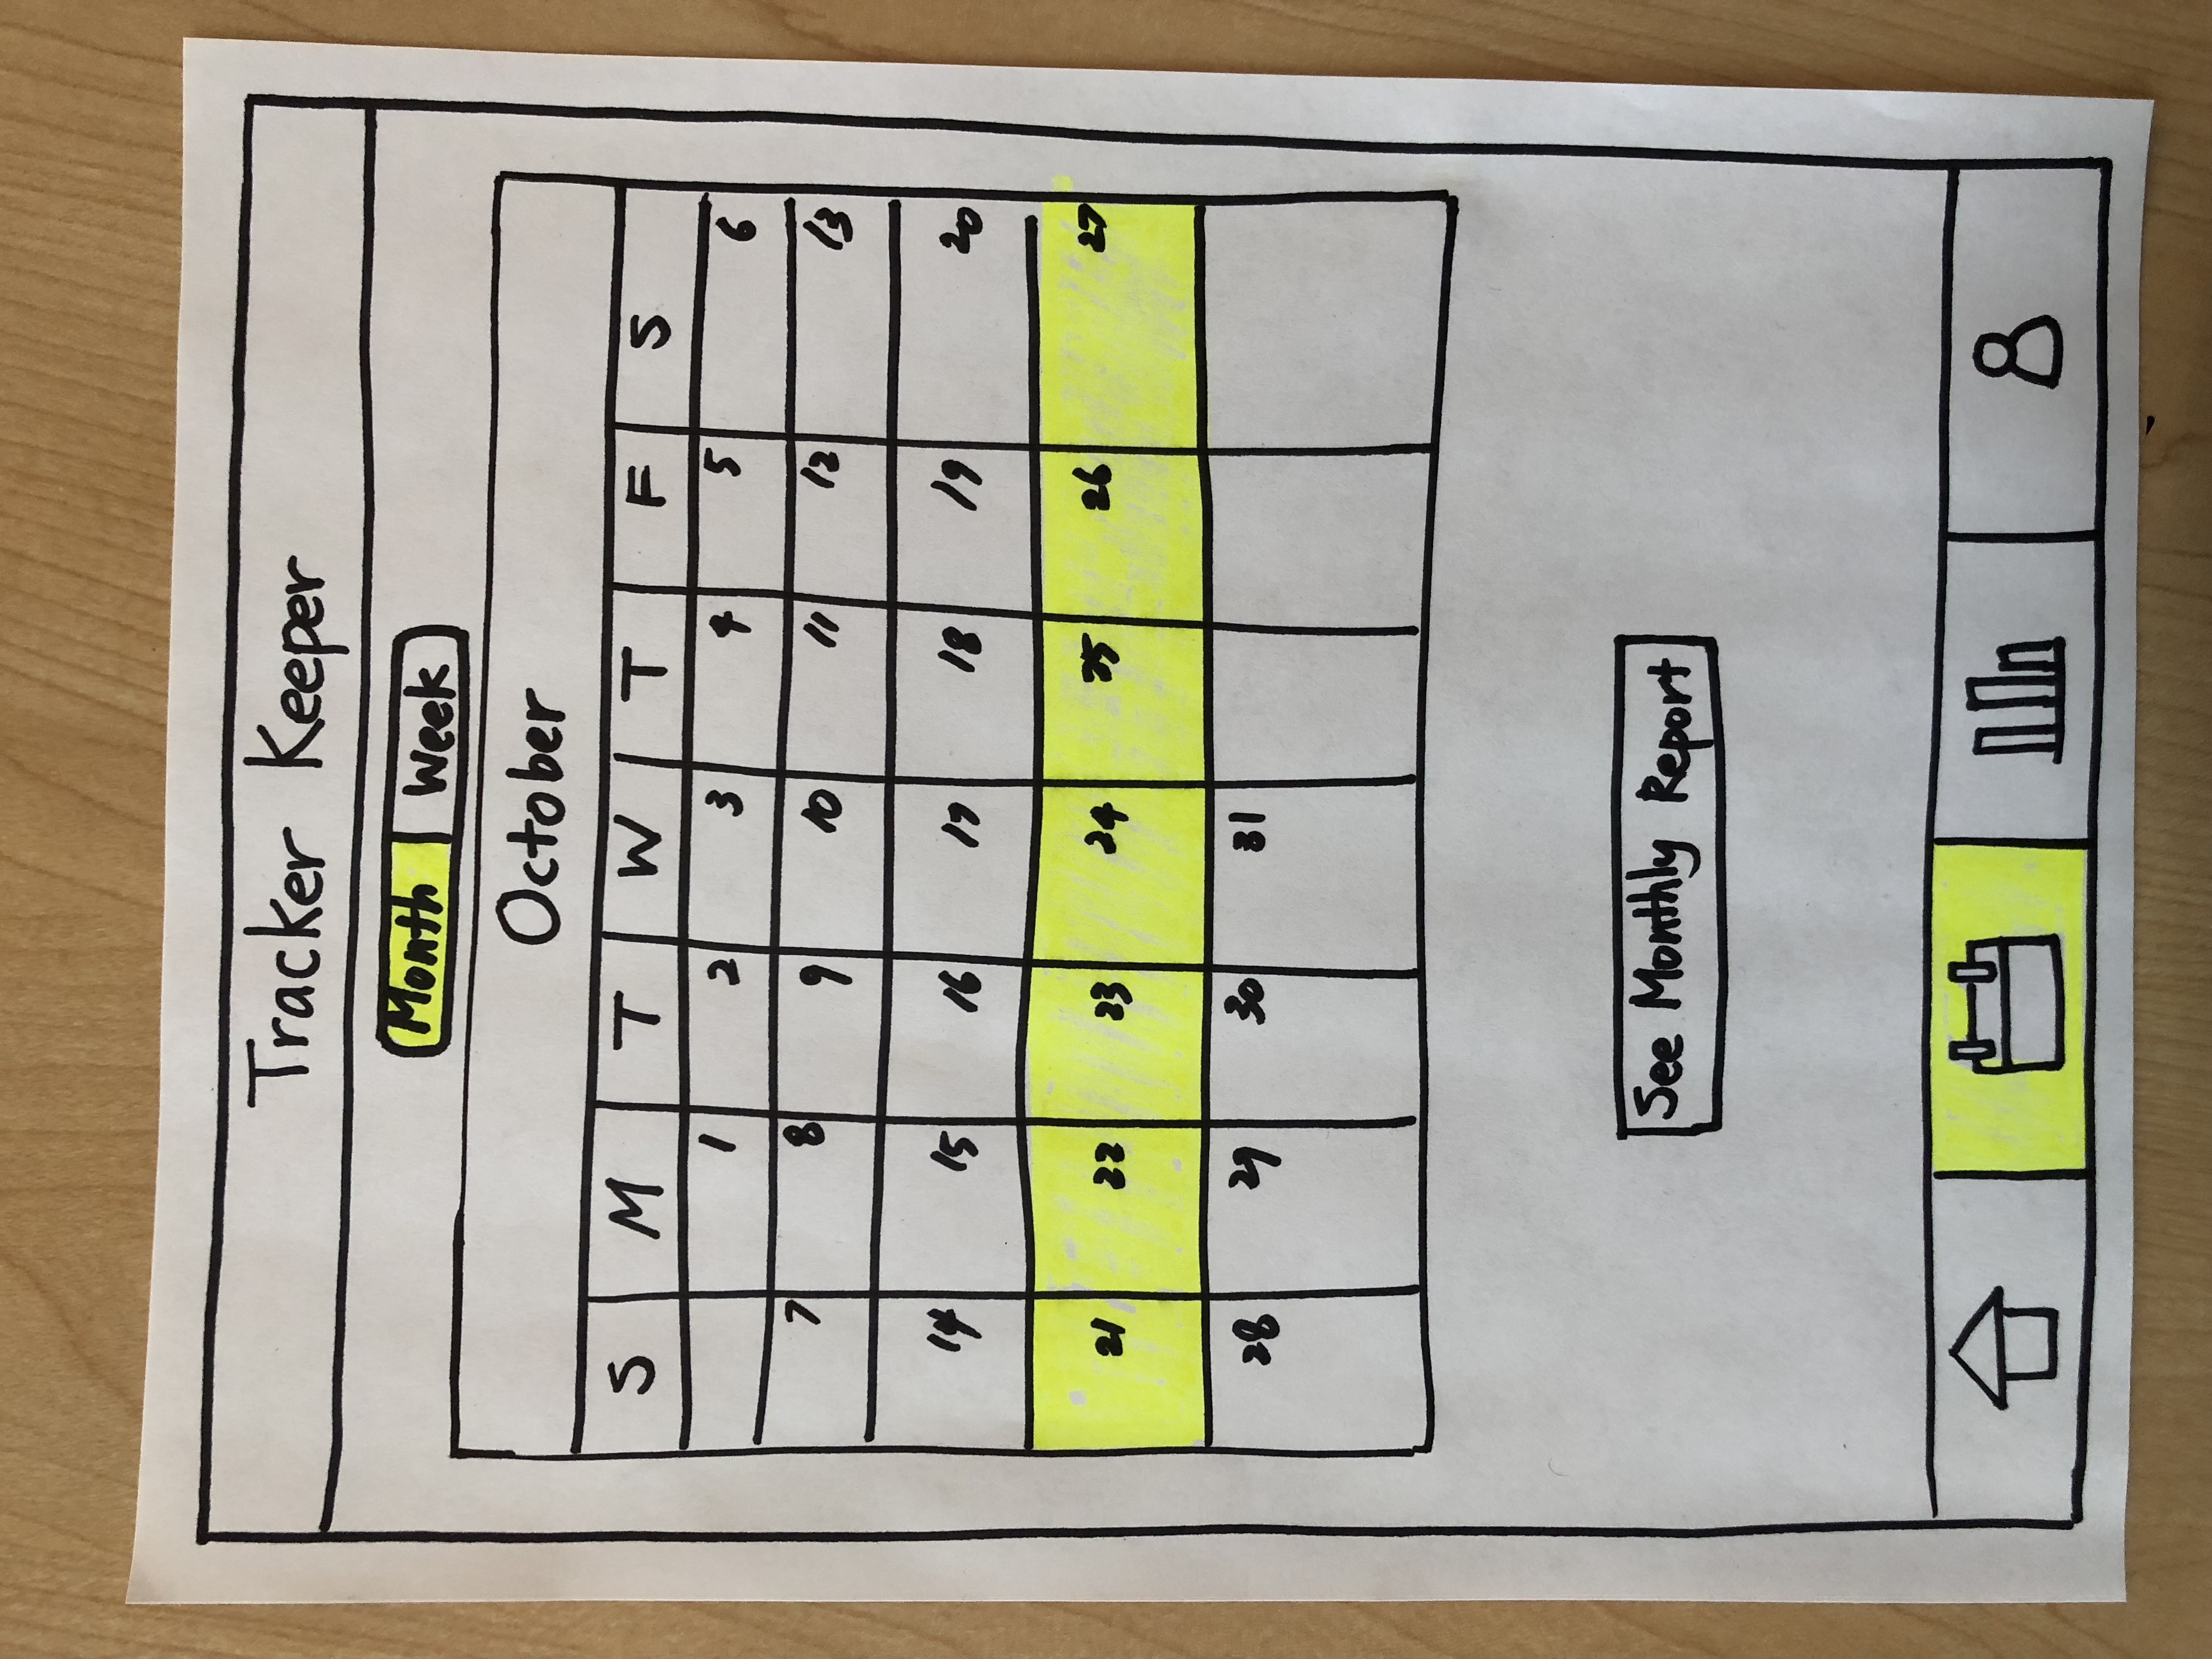 Tracker Keeper
Month Week
October
S M T W T F S
1 2 3 4 5 6
7 8 9 10 11 12 13
14 15 16 17 18 19 20
21 22 23 24 25 26 27
28 29 30 31
See Monthly Report